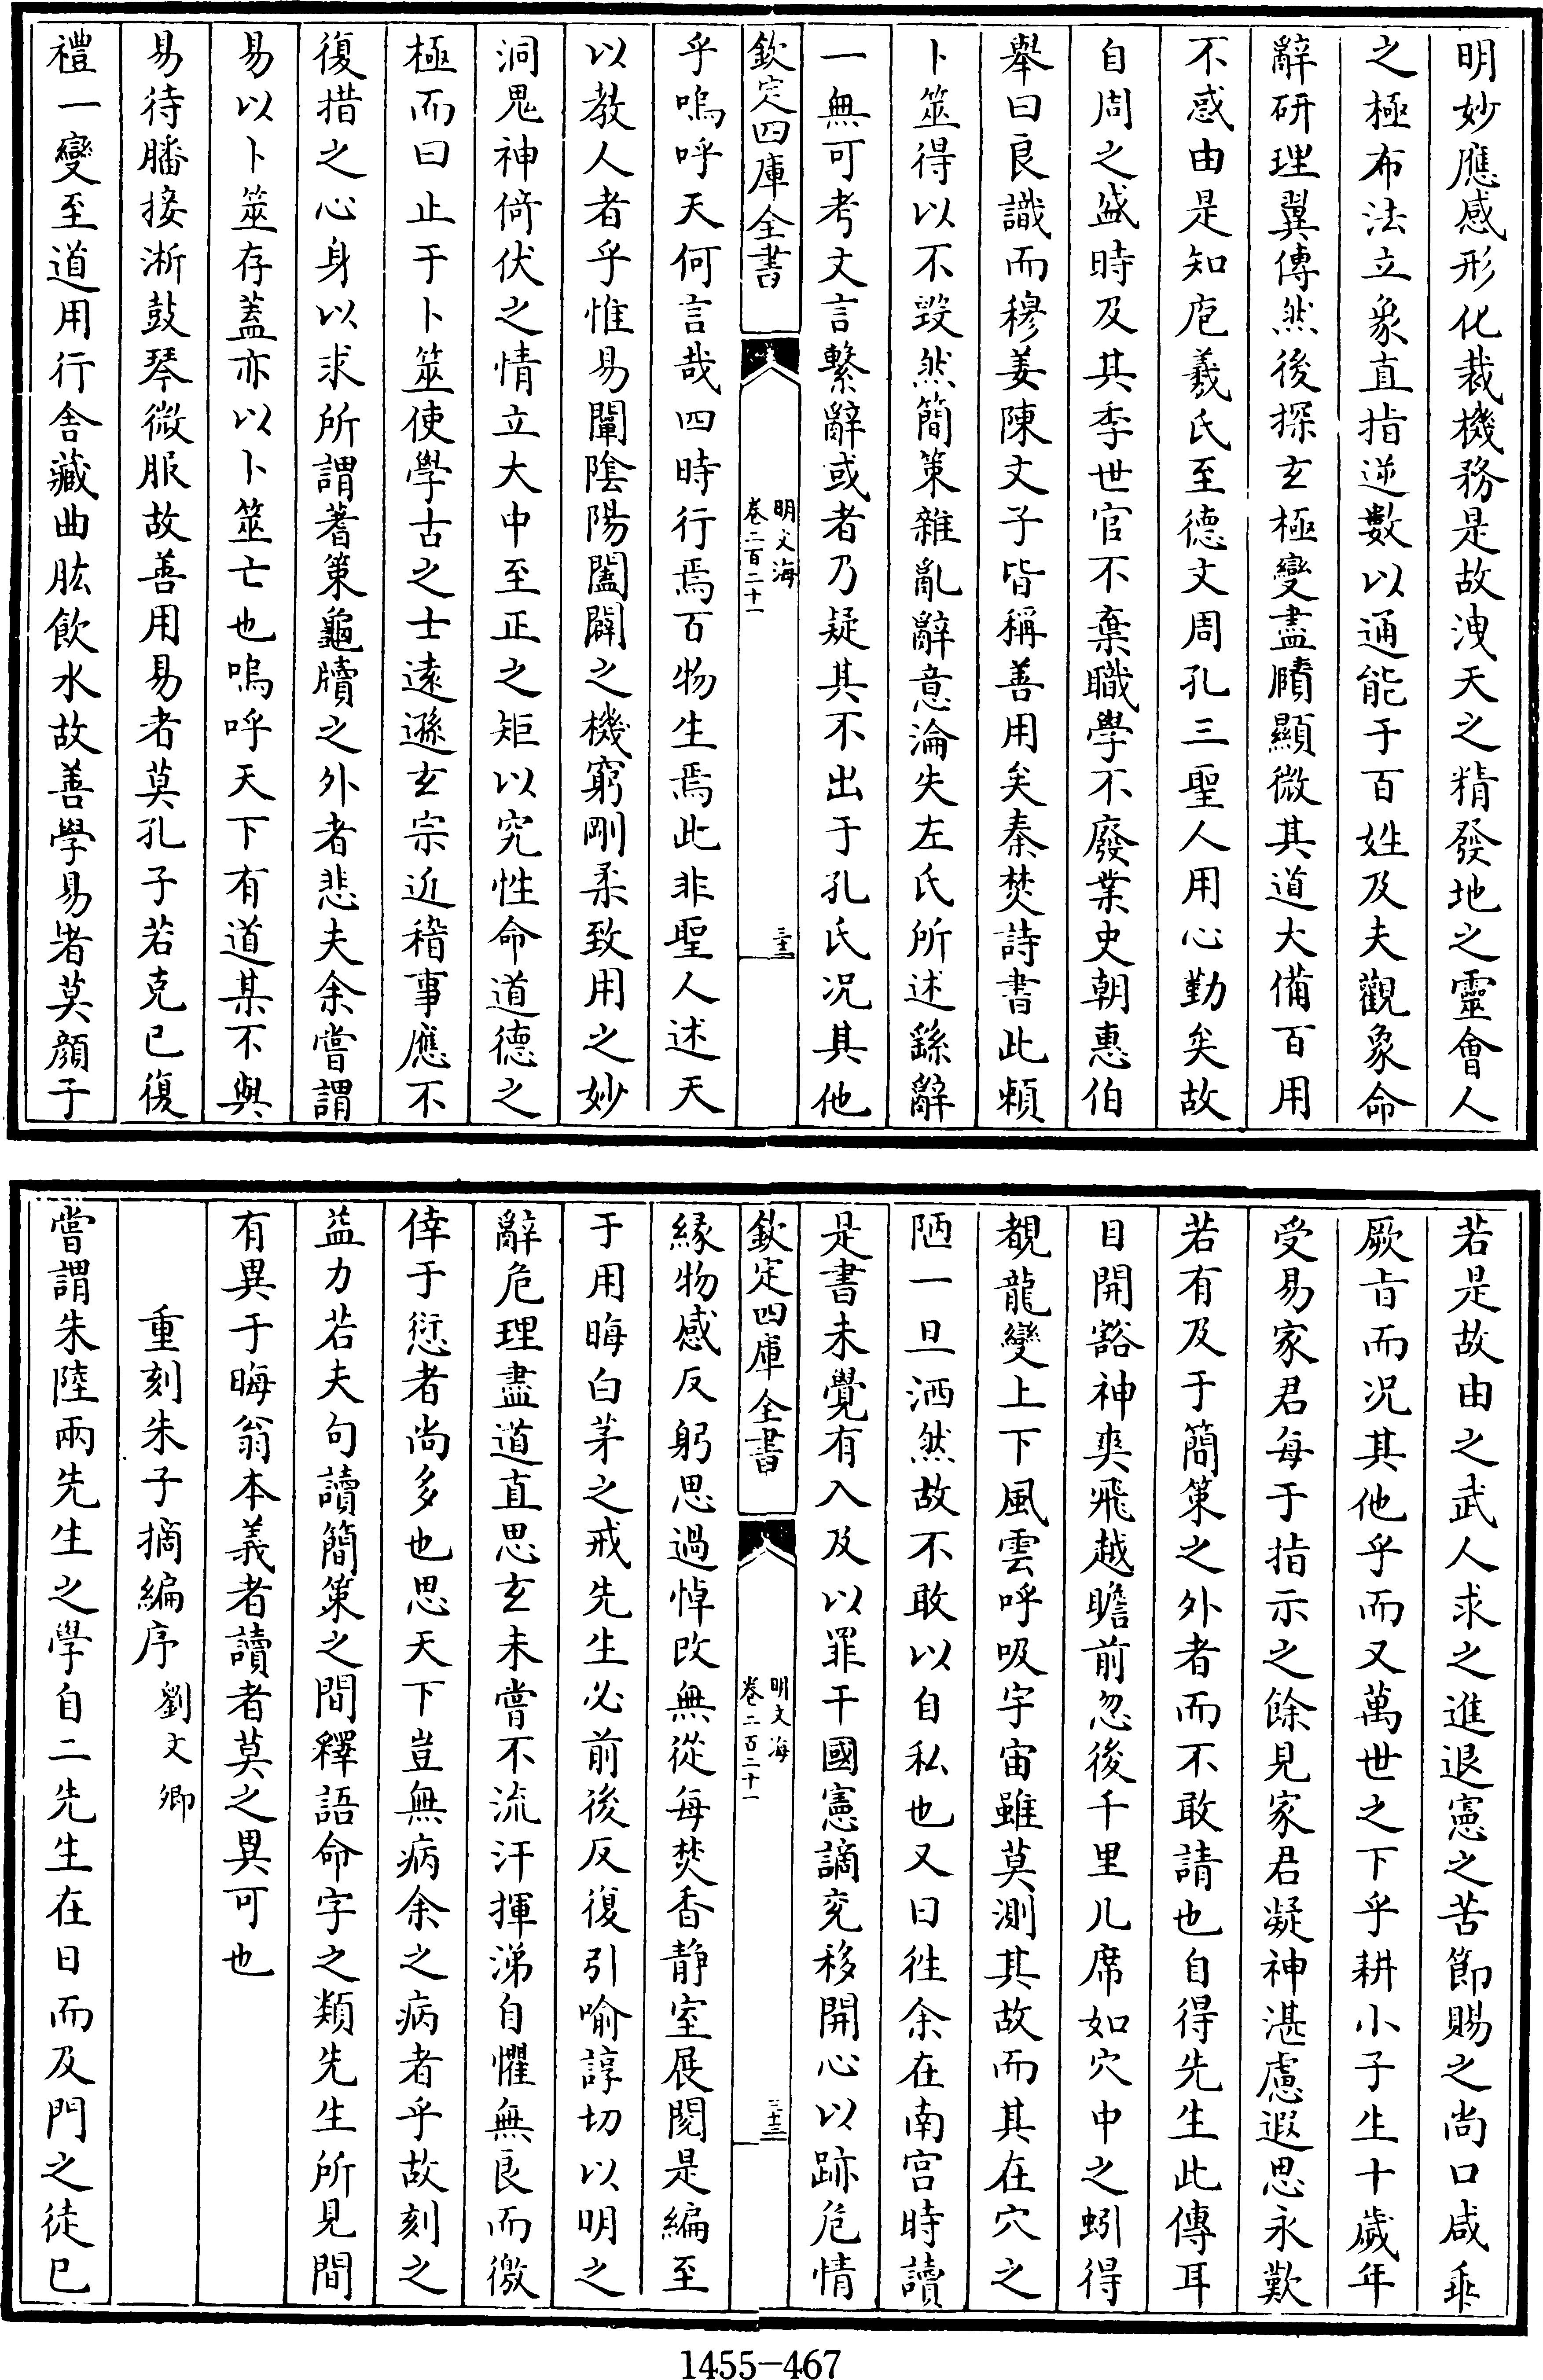 明妙應感形化裁機務是故洩天之精發地之靈會人
之極布法立象直指逆數以通能于百姓及夫觀象命
辭研理翼傳然後探玄極變盡賾顯微其道大備百用
不惑由是知庖羲氏至德文周孔三聖人用心勤矣故
自周之盛時及其季世官不棄職學不廢業史朝惠伯
舉曰良識而穆姜陳文子皆稱善用矣秦焚詩書此頼
卜筮得以不毀然簡策雜亂辭意淪失左氏所述繇辭
一無可考文言繫辭或者乃疑其不出于孔氏况其他
欽定四庫全書
明文海
卷二百二十一
三十二
乎嗚呼天何言哉四時行焉百物生焉此非聖人述天
以教人者乎惟易闡陰陽闔闢之機窮剛柔致用之妙
洞鬼神倚伏之情立大中至正之矩以究性命道德之
極而曰止于卜筮使學古之士遠遜玄宗近稽事應不
復措之心身以求所謂蓍策龜牘之外者悲夫余嘗謂
易以卜筮存蓋亦以卜筮亡也嗚呼天下有道某不與
易待膰接淅鼓琴微服故善用易者莫孔子若克已復
禮一變至道用行舍藏曲肱飲水故善學易者莫顔子
若是故由之武人求之進退憲之苦節賜之尚口咸乖
厥旨而况其他乎而又萬世之下乎耕小子生十歲年
受易家君每于指示之餘見家君凝神湛慮遐思永歎
若有及于簡策之外者而不敢請也自得先生此傳耳
目開豁神爽飛越瞻前忽後千里几席如穴中之蚓得
覩龍變上下風雲呼吸宇宙雖莫測其故而其在穴之
陋一旦洒然故不敢以自私也又曰徃余在南宫時讀
是書未覺有入及以罪干國憲謫兖移開心以跡危情
欽定四庫全書
明文海
卷二百二十一
三十三
緣物感反躬思過悼改無從每焚香静室展閱是編至
于用晦白茅之戒先生必前後反復引喻諄切以明之
辭危理盡道直思玄未嘗不流汗揮涕自懼無良而徼
倖于愆者尚多也思天下豈無病余之病者乎故刻之
益力若夫句讀簡策之間釋語命字之類先生所見間
有異于晦翁本義者讀者莫之異可也
重刻朱子摘編序 劉文卿
嘗謂朱陸兩先生之學自二先生在日而及門之徒已
1455-467